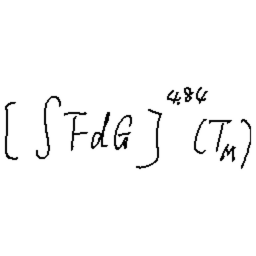 [ ∫ F d G ]^{4.84} (T_M)